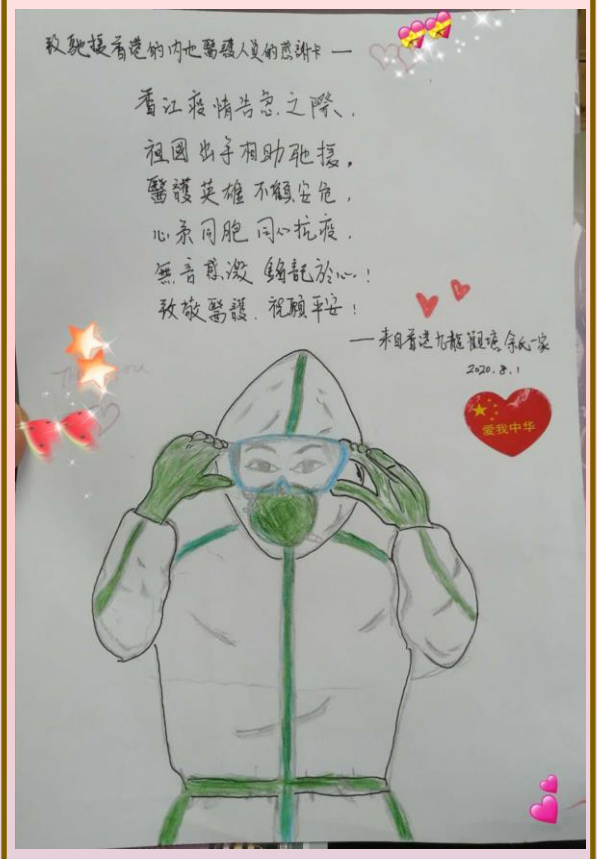 致馳援香港的内地醫護人員的感謝卡 —
香江疫情告急之際、
祖國出手相助馳援。
醫護英雄不顧安危，
心系同胞 同心抗疫．
無言感激 銘記於心！
致敬醫護．祝願平安！
— 来自香港九龍觀塘余氏一家
2020.8.1
爱我中华
you